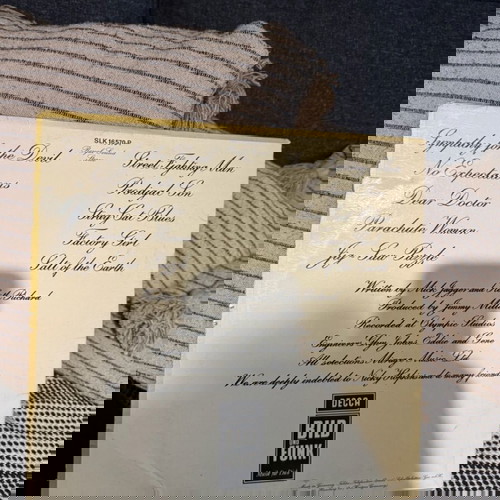 SLK 16570-P
Sympathy for the Devil
No Expectations
Dear Doctor
Parachute Woman
Jig-Saw Puzzle
Street Fighting Man
Prodigal Son
Stray Cat Blues
Factory Girl
Salt of the Earth
Written by Mick Jagger and Keith Richard
Produced by Jimmy Miller
Recorded at Olympic Studios
Engineers - Glyn Johns, Eddie and Gene
All selections Mirage Music Ltd.
We are deeply indebted to Nicky Hopkins and many friends
DECCA